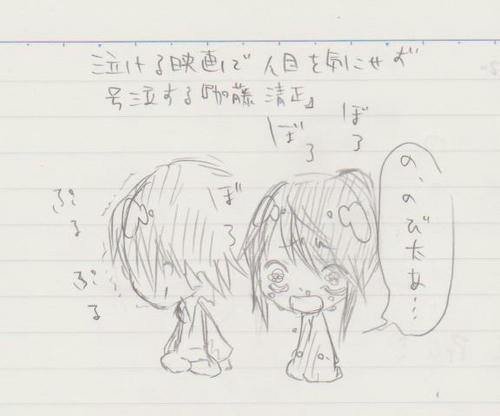 泣ける映画で人目を気にせず
号泣する『加藤清正』
ぼろ
ぼろ
ぼろ
の、のび太ぁ…
ぷる
ぷる